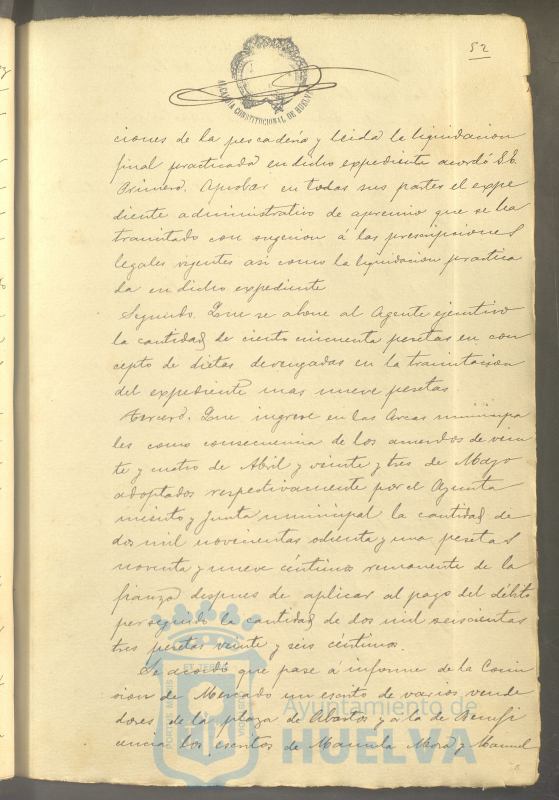 52
ALCALDIA CONSTITUCIONAL DE HUELVA
ciones de la pescadería y leida la liquidacion
final practicada en dicho expediente acordó S.E.
Primero. Aprobar en todas sus partes el expe
diente administrativo de apremio que se ha
tramitado con sugecion á las prescripciones
legales vigentes asi como la liquidacion practica
da en dicho expediente
Segundo. Que se abone al Agente ejecutivo
la cantidad de ciento cincuenta pesetas en con
cepto de dietas devengadas en la tramitacion
del expediente mas nueve pesetas.
Tercero. Que ingrese en las Arcas municipa
les como consecuencia de los acuerdos de vein
te y cuatro de Abril y veinte y tres de Mayo
adoptados respectivamente por el Ayunta
miento y Junta municipal la cantidad de
dos mil novecientas ochenta y una pesetas
noventa y nueve céntimos remanente de la
fianza despues de aplicar al pago del débito
perseguido la cantidad de dos mil seiscientas
tres pesetas veinte y seis céntimos.
Se acordó que pase á informe de la Comi
sion de Mercado un escrito de varios vende
dores de la plaza de Abastos y á la de Benefi
cencia los escritos de Manuela Mora y Manuel
Ayuntamiento de
HUELVA